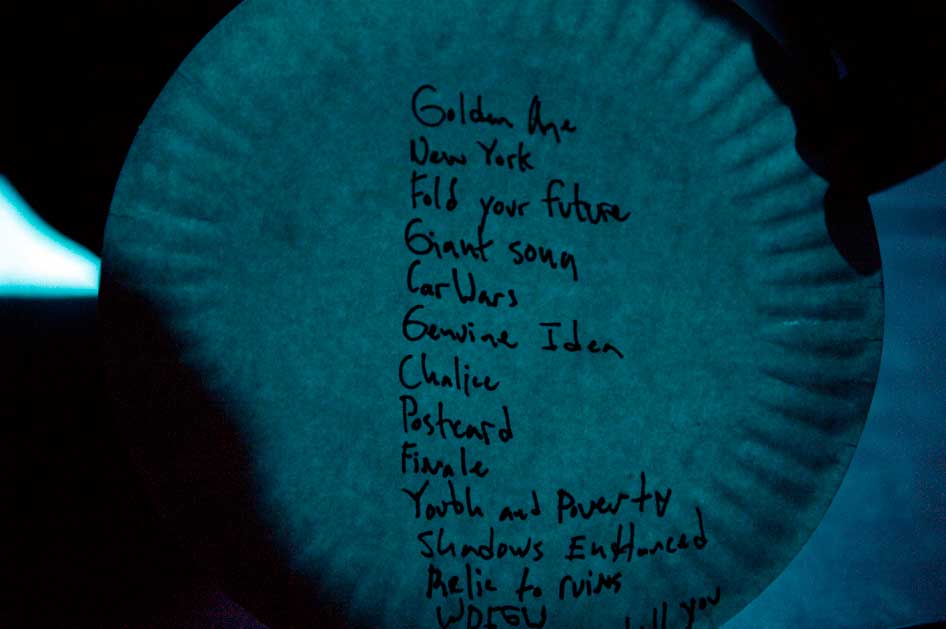 Golden Age
New York
Fold your future
Giant song
Car Wars
Genuine Idea
Chalice
Postcard
Finale
Youth and Poverty
Shadows Enhanced
Relic to ruins
you